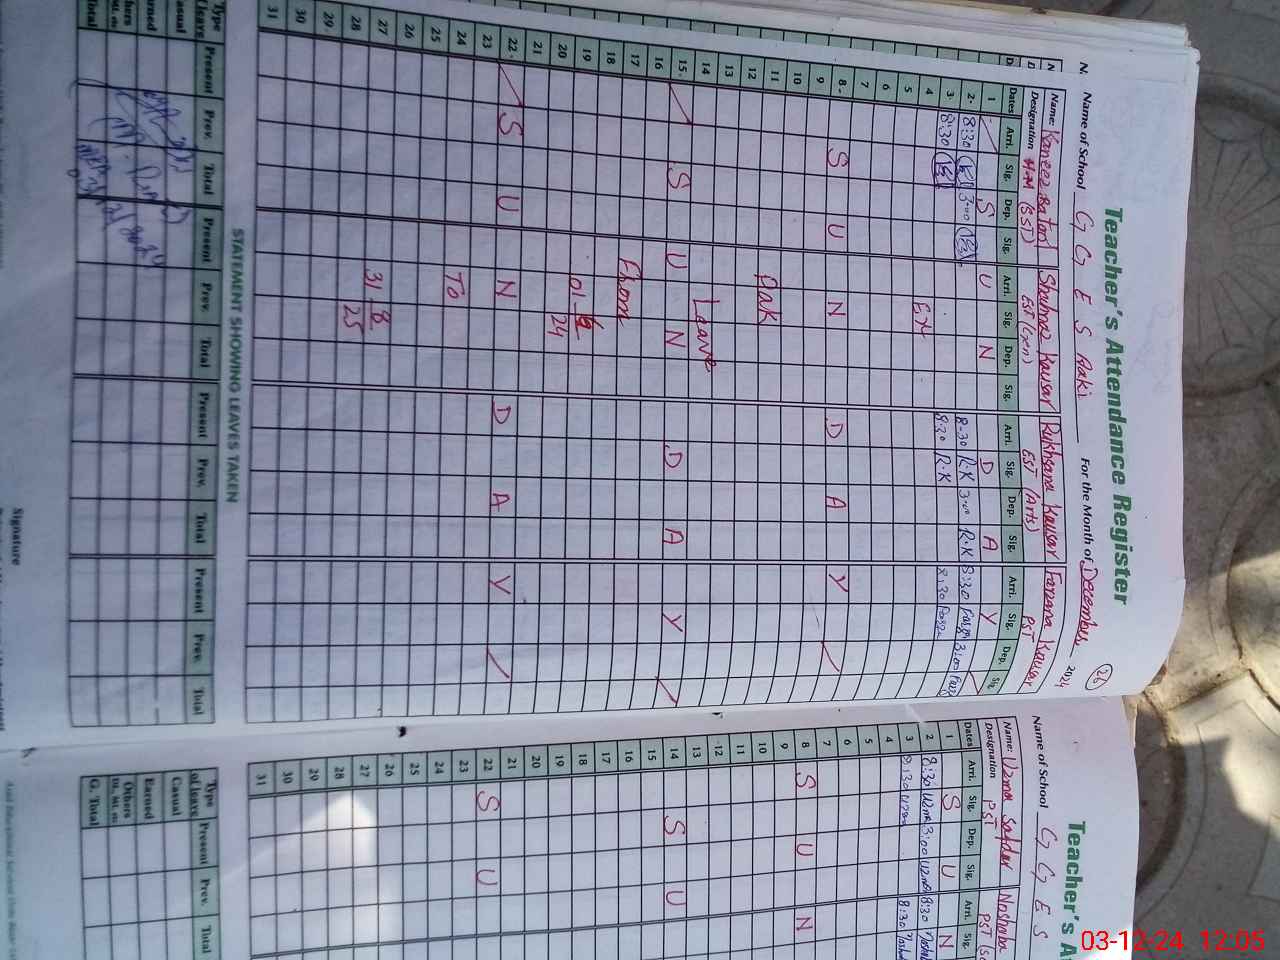 Teacher's Attendance Register
Name of School G G E S Aaki For the Month of December 2024
26
Name: Kaneez Batool Shahnaz Kausar Rukhsana Kausar Farzana Kausar
Designation H.M (SST) EST (Gen) EST (Arts) PST
Dates Arri. Sig. Dep. Sig. Arri. Sig. Dep. Sig. Arri. Sig. Dep. Sig. Arri. Sig. Dep. Sig.
1 S U N D A Y
2 8:30 3:00 8:30 R.K 3:00 R.K 8:30 3:00
3 8:30 8:30 R.K 8:30
4
5 Ex
6
7
8 S U N D A Y
9
10
11 Pak
12
13
14 Leave
15 S U N D A Y
16
17 From
18
19 01-
20 24
21
22 S U N D A Y
23
24 To
25
26
27 31 8
28 25
29
30
31
STATEMENT SHOWING LEAVES TAKEN
Type of leave Present Prev. Total Present Prev. Total Present Prev. Total Present Prev. Total
Casual
Earned
Total
Signature
Teacher's A
Name of School G G E S
Name: Uzma Safdar Noshaba
Designation PST PST
Dates Arri. Sig. Dep. Sig. Arri. Sig.
1 S U N
2 8:30 Uzma 3:00 Uzma 8:30
3 8:30 Uzma 8:30
4
5
6
7
8 S U N
9
10
11
12
13
14 S U
15
16
17
18
19
20
21
22 S U
23
24
25
26
27
28
29
30
31
Type of leave Present Prev. Total
Casual
Earned
Others
G. Total
03-12-24 12:05